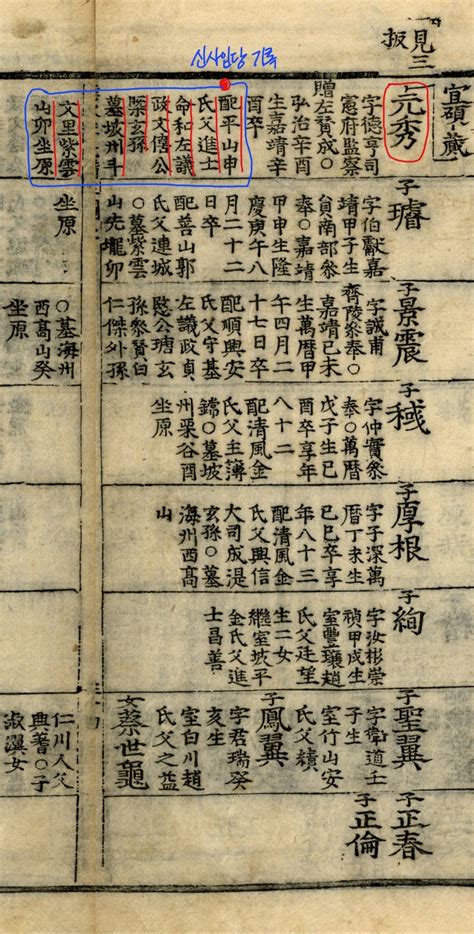 신사임당 기록
見三
扳
宜碩
元秀
字德亨司
憲府監察
贈左賛成○
弘治辛酉
生嘉靖辛
酉卒
配平山申
氏父進士
命和左議
政文僖公
槩玄孫
墓坡州斗
文里紫雲
山卯坐原
子
字伯獻嘉
靖甲子生
貟南部參
奉○嘉靖
甲申生隆
慶庚午八
月二十二
日卒
配善山郭
氏父連城
○墓紫雲
山先壠卯
坐原
子景震
字誠甫
齊陵參奉○
嘉靖己未
生萬曆甲
午四月二
十七日卒
配順興安
氏父守基
左議政貞
愍公瑭玄
孫參賛白
仁傑外孫
○墓海州
西髙山癸
坐原
子
字仲實參
奉○萬曆
戊子生己
酉卒享年
八十二
配清風金
氏父主簿
○墓坡
州栗谷酉
坐原
子厚根
字子深萬
曆丁未生
己巳卒享
年八十三
配清風金
氏父興信
大司成湜
玄孫○墓
海州西髙
山
子絢
字汝彬崇
禎甲戌生
室豐壤趙
氏父廷望
生二女
繼室坡平
金氏父進
士昌善
子聖翼
道壬
子生
室竹山安
氏父績
子鳳翼
字君瑞癸
亥生
室白川趙
氏父之益
女蔡世龜
仁川人父
○子
女
子正春
子正倫